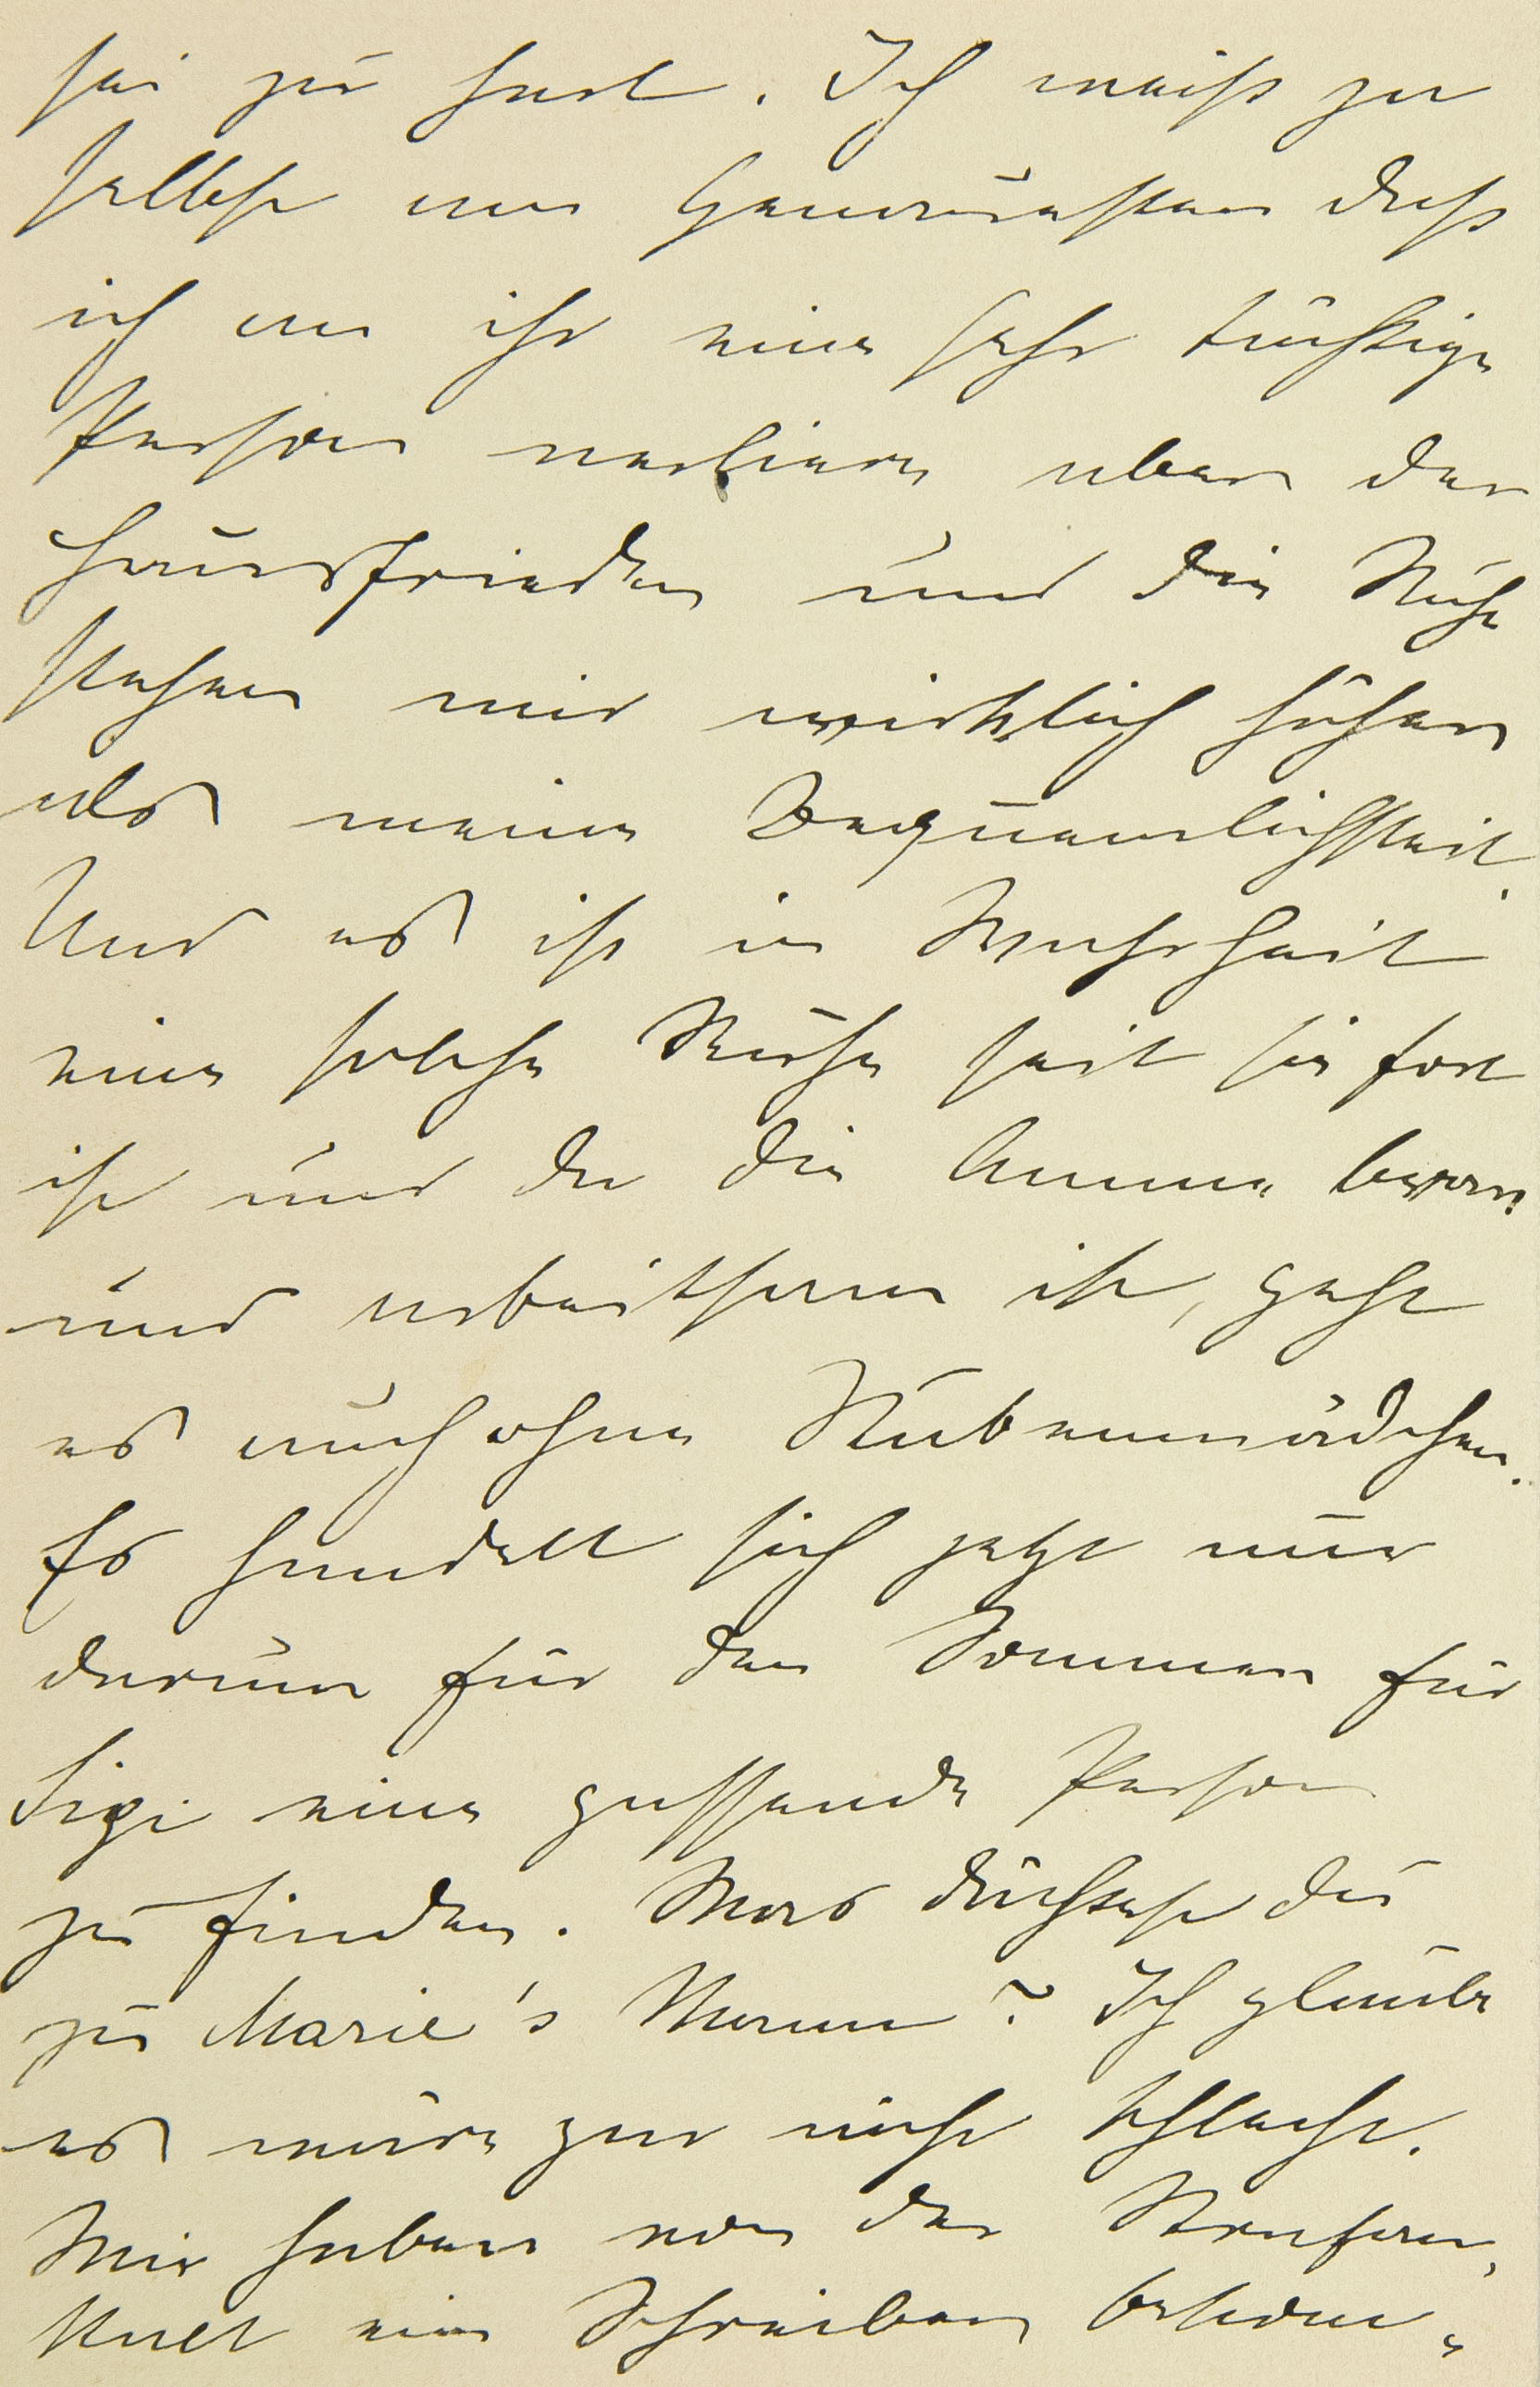 sei zu hart. Ich weiß ja
selbst am Genauesten daß
ich an ihr eine sehr tüchtige
Person verliere aber der
Hausfrieden und die Ruhe
stehen mir wirklich höher
als meine Bequemlichkeit.
Und es ist in Wahrheit
eine solche Ruhe seit sie fort
ist und da die Amme brav
und arbeitsam ist, geht
es auch ohne Stubenmädchen.
Es handelt sich jetzt nur
darum für den Sommer für
Sigi eine passende Person
zu finden. Was dächtest du
zu Marie's Mama? Ich glaube
es wäre gar nicht schlecht.
Wir haben von der
ein Schreiben bekom-